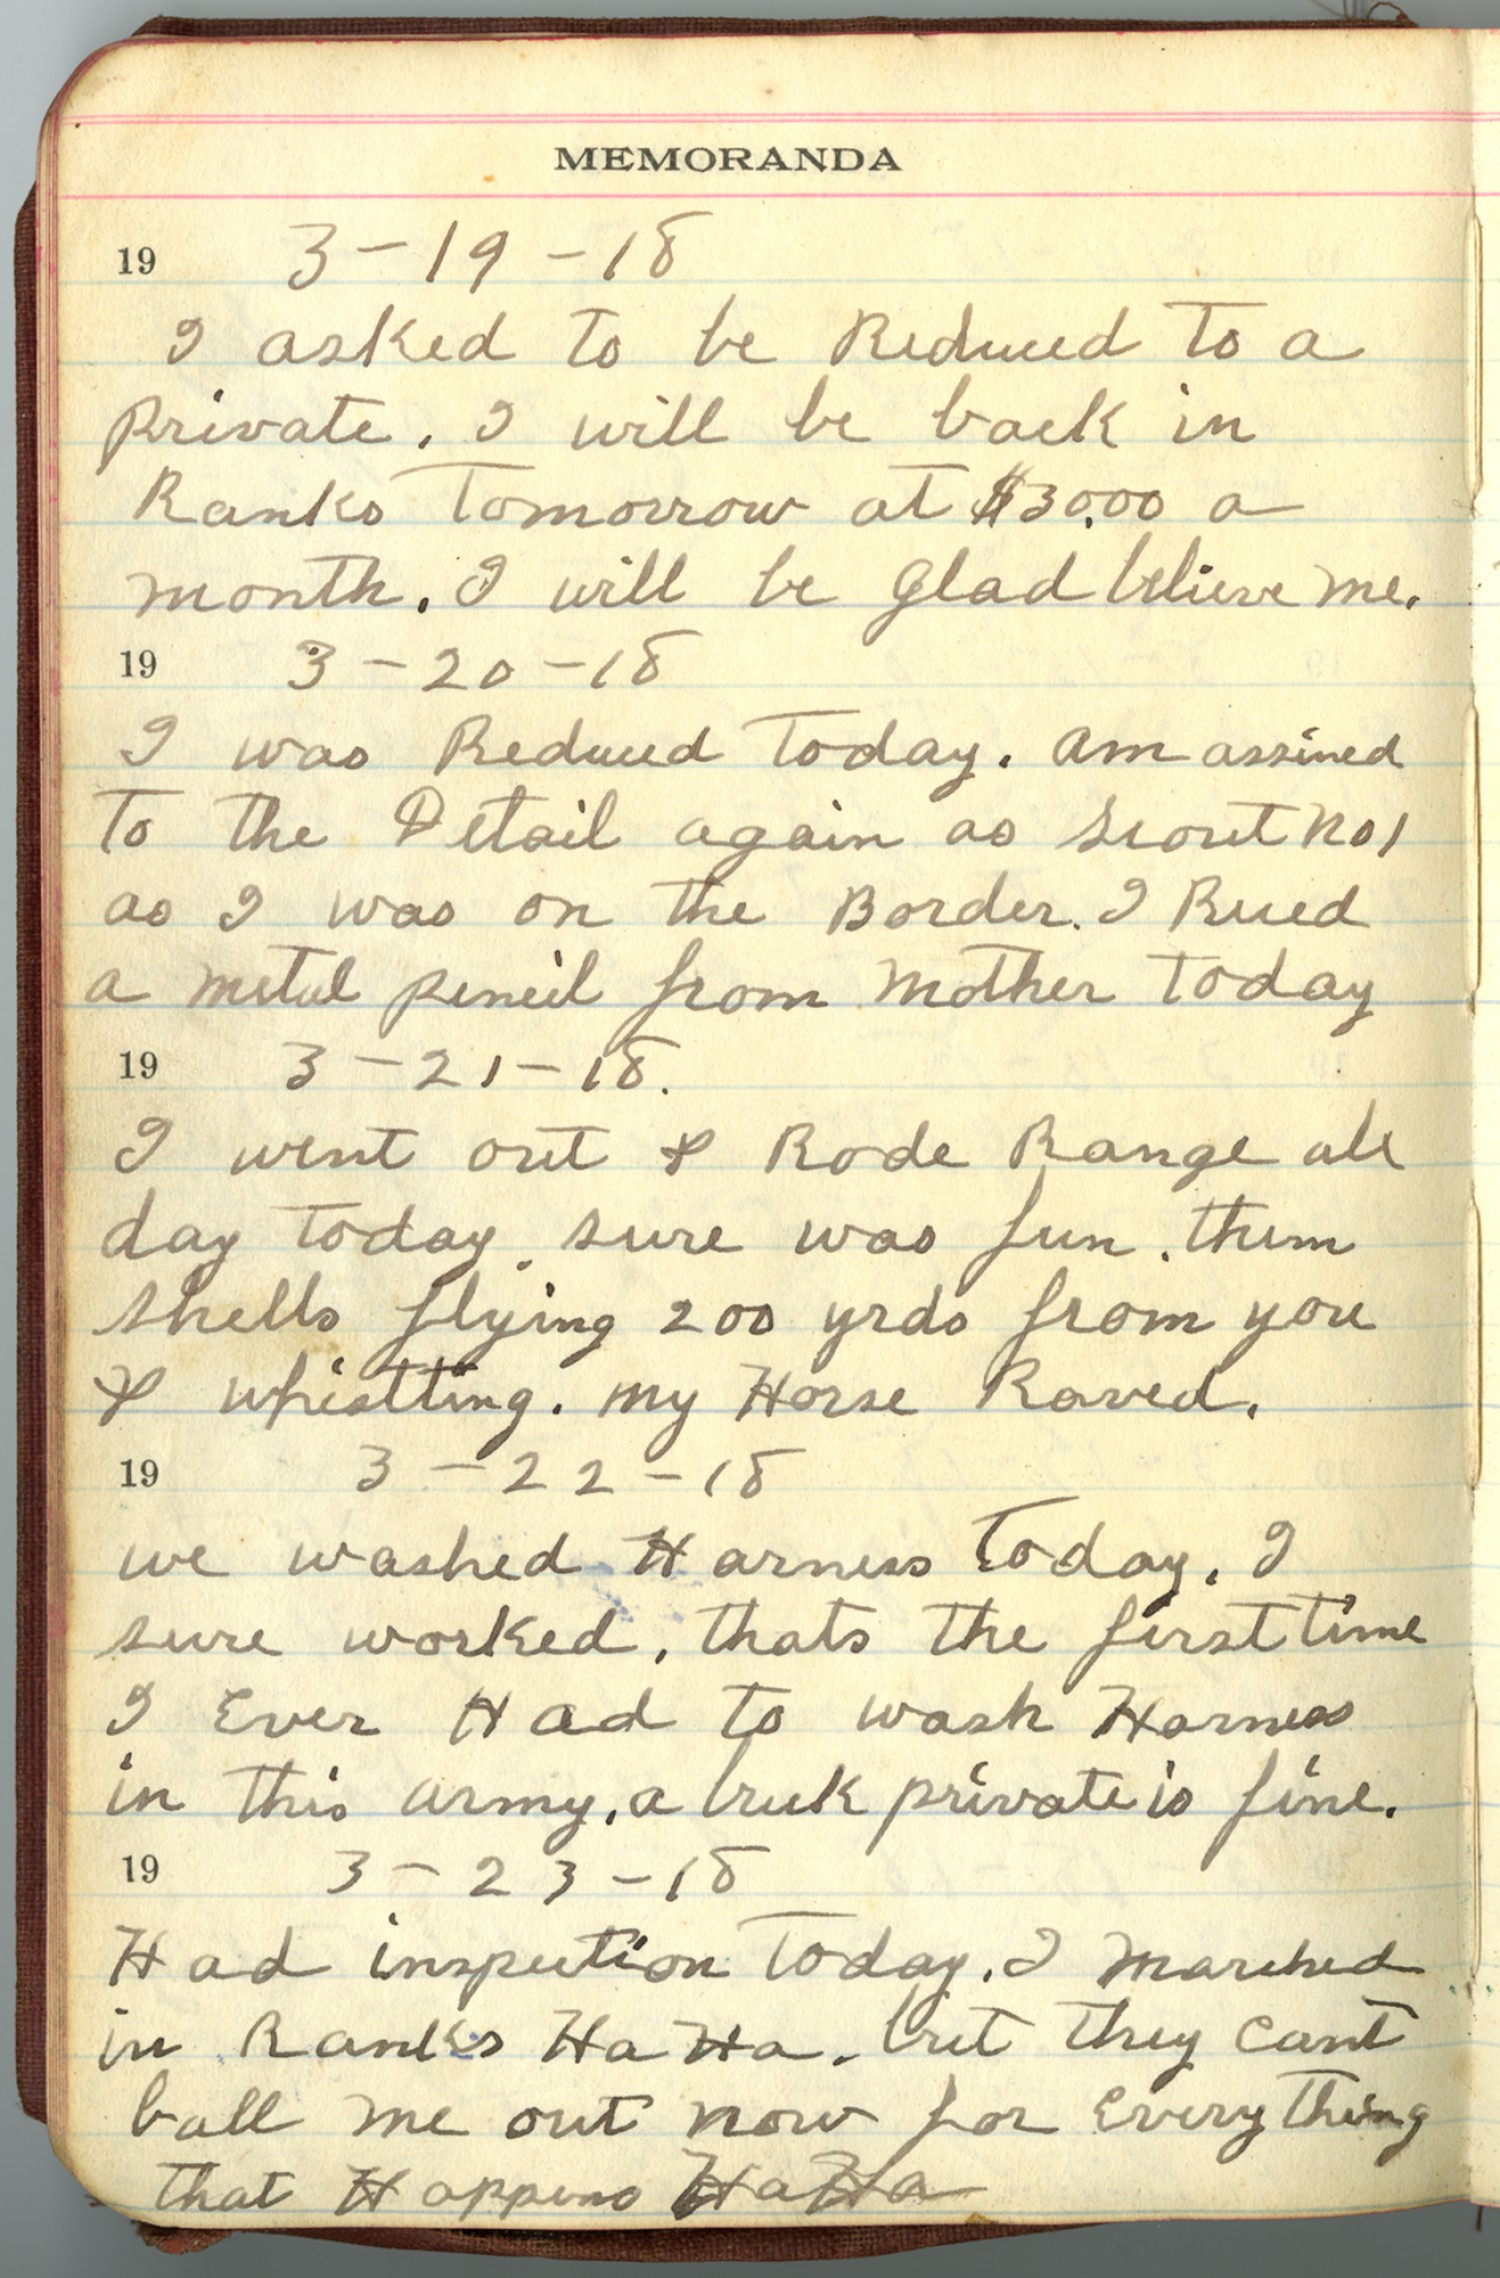 MEMORANDA
19 3-19-18
I asked to be Reduced to a
Private. I will be back in
Ranks Tomorrow at $30.00 a
month. I will be Glad believe me.
19 3-20-18
I was Reduced Today. am assined
To the Detail again as Scout No 1
as I was on the Border. I Rued
a metal pencil from Mother Today
19 3-21-18.
I went out & Rode Range all
day Today. sure was fun. them
shells flying 200 yrds from you
& whistling. my Horse Raved.
19 3-22-18
we washed Harness Today. I
sure worked. thats the first time
I Ever Had to wash Harness
in this army. a buck private is fine.
19 3-23-18
Had inspection Today. I marched
in Ranks Ha Ha. but they cant
ball me out now for Everything
that Happens Ha Ha